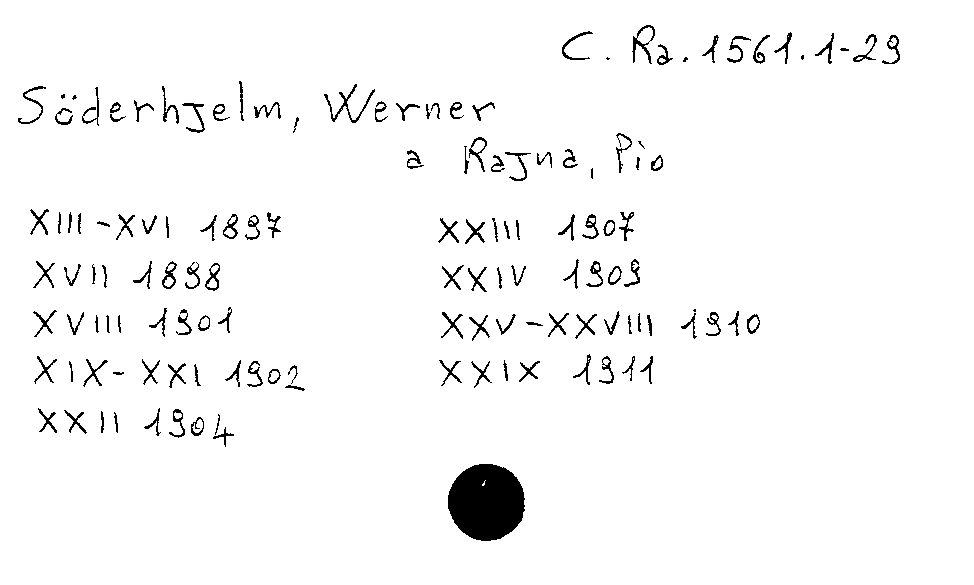 C. Ra. 1561. 1-29
Söderhjelm, Werner
a Rajna, Pio
XIII-XVI 1897
XVII 1898
XVIII 1901
XIX-XXI 1902
XXII 1904
XXIII 1907
XXIV 1909
XXV-XXVIII 1910
XXIX 1911